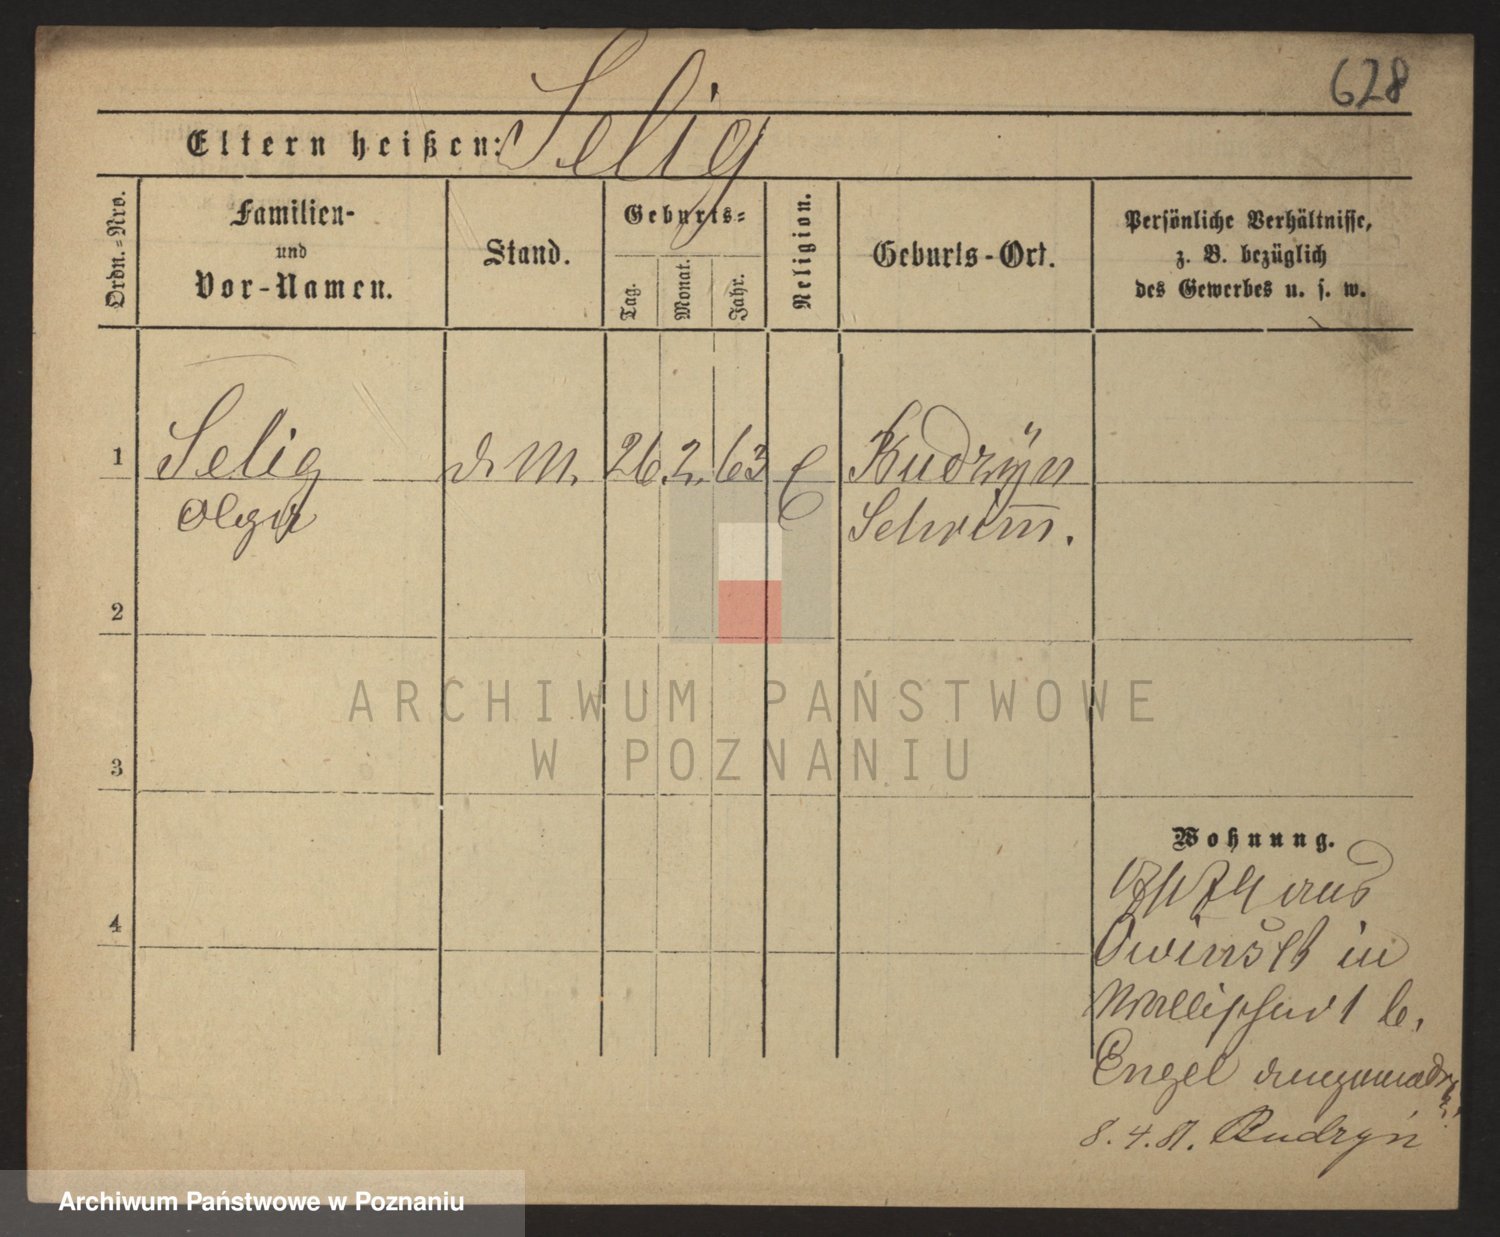 628
Eltern heißen: Selig
Ordn.-Nro.
Familien-
und
Vor-Namen.
Stand.
Geburts-
Tag.
Monat.
Jahr.
Religion.
Geburts-Ort.
Persönliche Verhältnisse,
z. B. bezüglich
des Gewerbes u. s. w.
1 Selig d. M. 26. 2. 63 E Kudrÿn
Olga Schrim̅.
2
3
4
Wohnung.
aus
Owinsk in
b.
Engel
8.4.81. Rudryn
ARCHIWUM PAŃSTWOWE
W POZNANIU
Archiwum Państwowe w Poznaniu